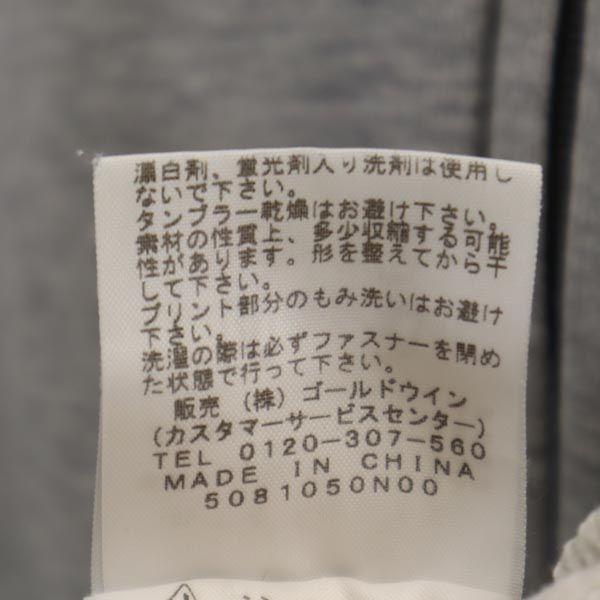 漂白剤、蛍光剤入り洗剤は使用し
ないで下さい。
タンブラー乾燥はお避け下さい。
素材の性質上、多少収縮する可能
性があります。形を整えてから干
して下さい。
プリント部分のもみ洗いはお避け
下さい。
洗濯の際は必ずファスナーを閉め
た状態で行って下さい。
販売 (株) ゴールドウイン
(カスタマーサービスセンター)
TEL 0120-307-560
MADE IN CHINA
5081050N00